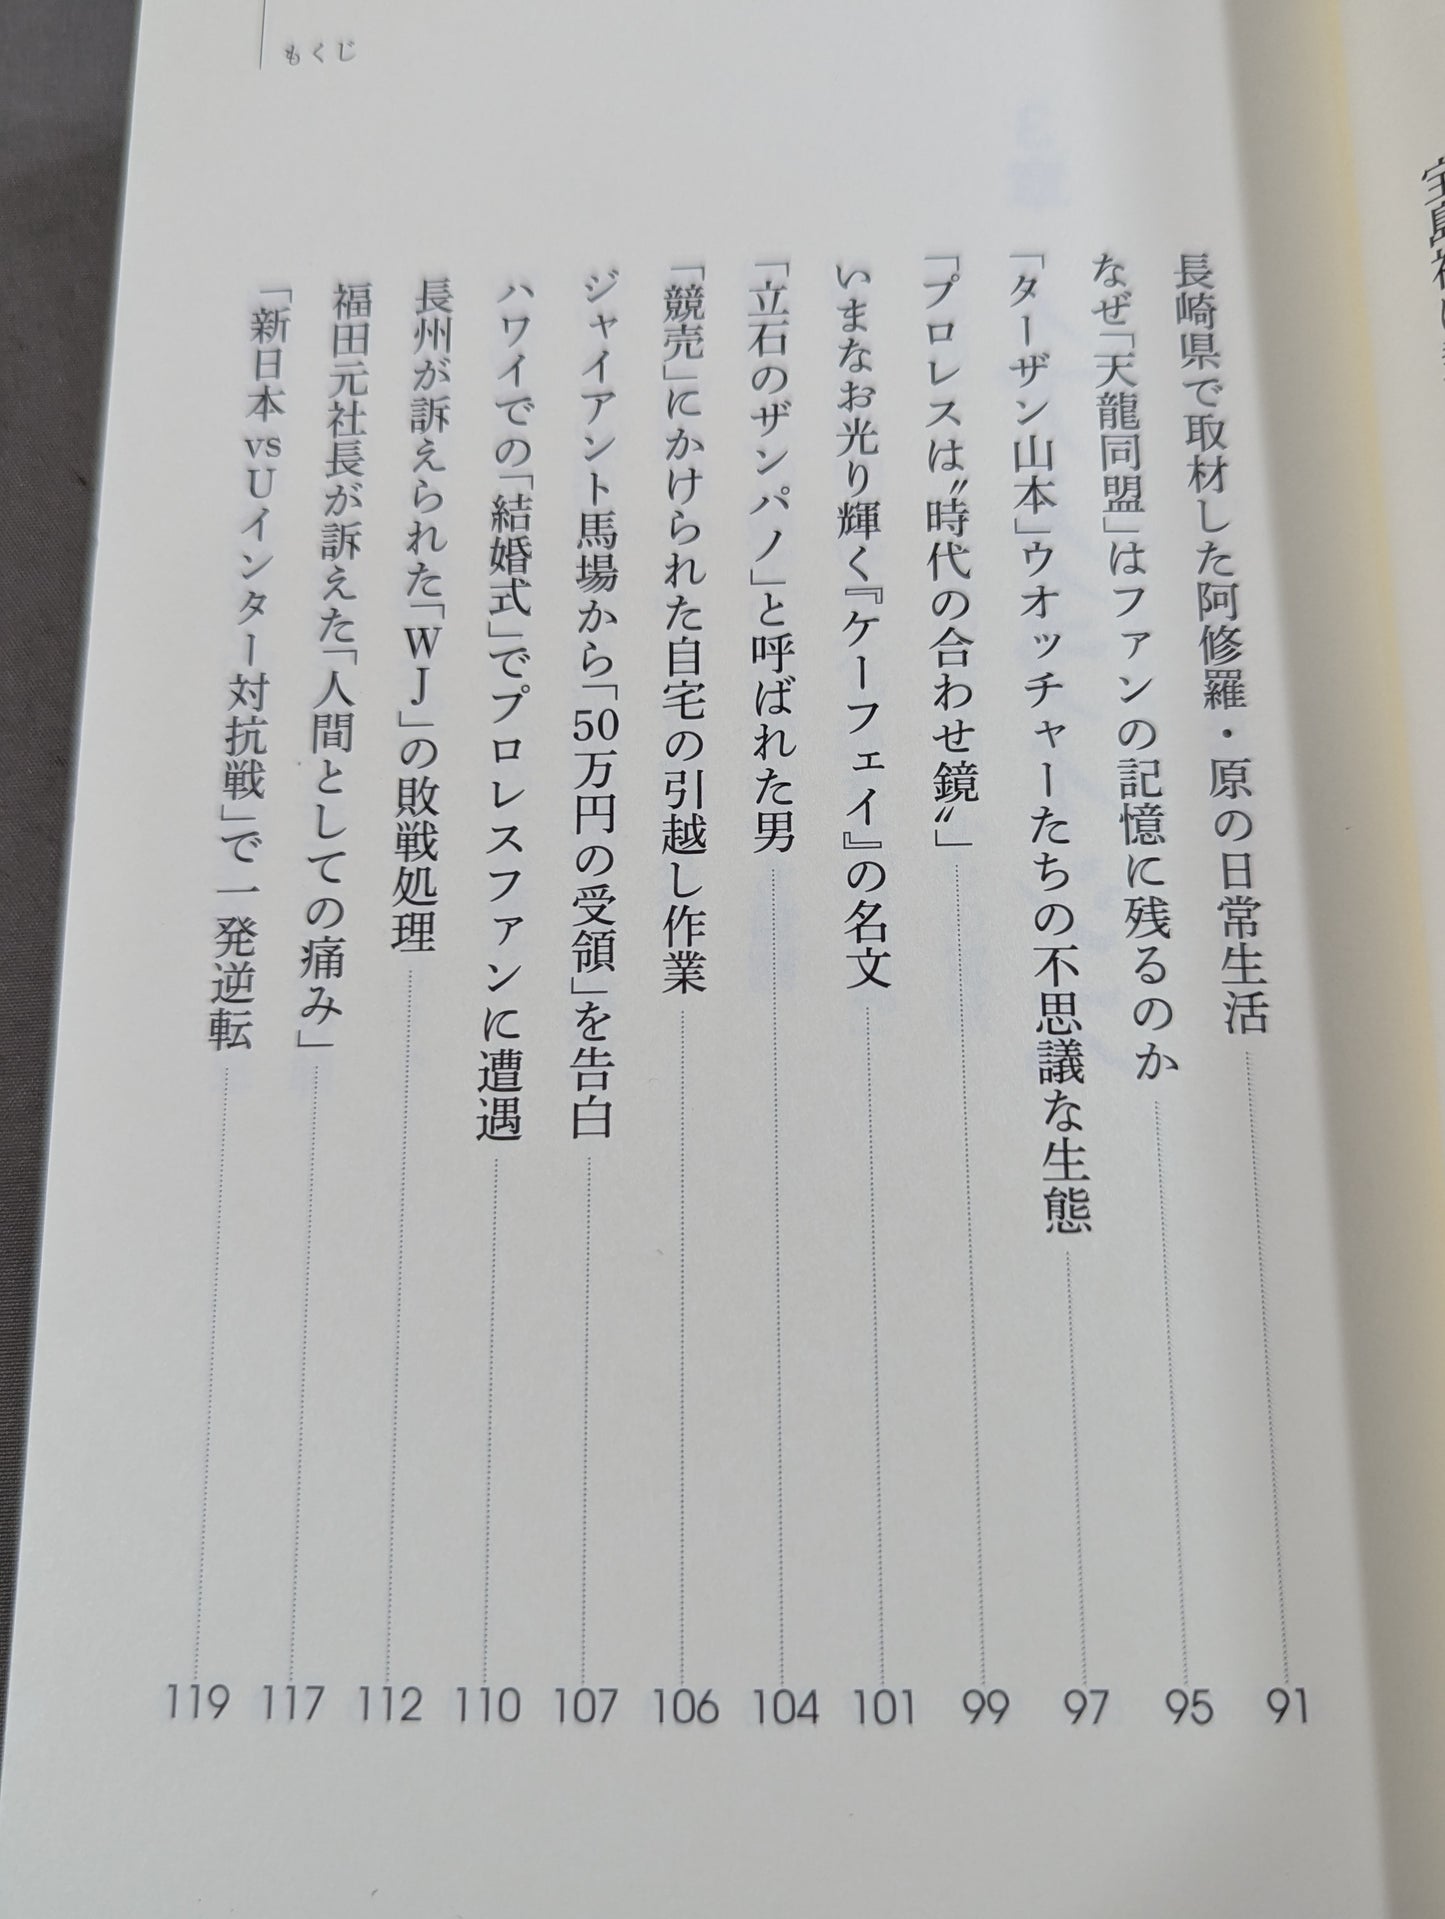 もくじ
長崎県で取材した阿修羅・原の日常生活 91
なぜ「天龍同盟」はファンの記憶に残るのか 95
「ターザン山本」ウオッチャーたちの不思議な生態 97
「プロレスは〝時代の合わせ鏡〟」 99
いまなお光り輝く『ケーフェイ』の名文 101
「立石のザンパノ」と呼ばれた男 104
「競売」にかけられた自宅の引越し作業 106
ジャイアント馬場から「50万円の受領」を告白 107
ハワイでの「結婚式」でプロレスファンに遭遇 110
長州が訴えられた「WJ」の敗戦処理 112
福田元社長が訴えた「人間としての痛み」 117
「新日本vsUインター対抗戦」で一発逆転 119